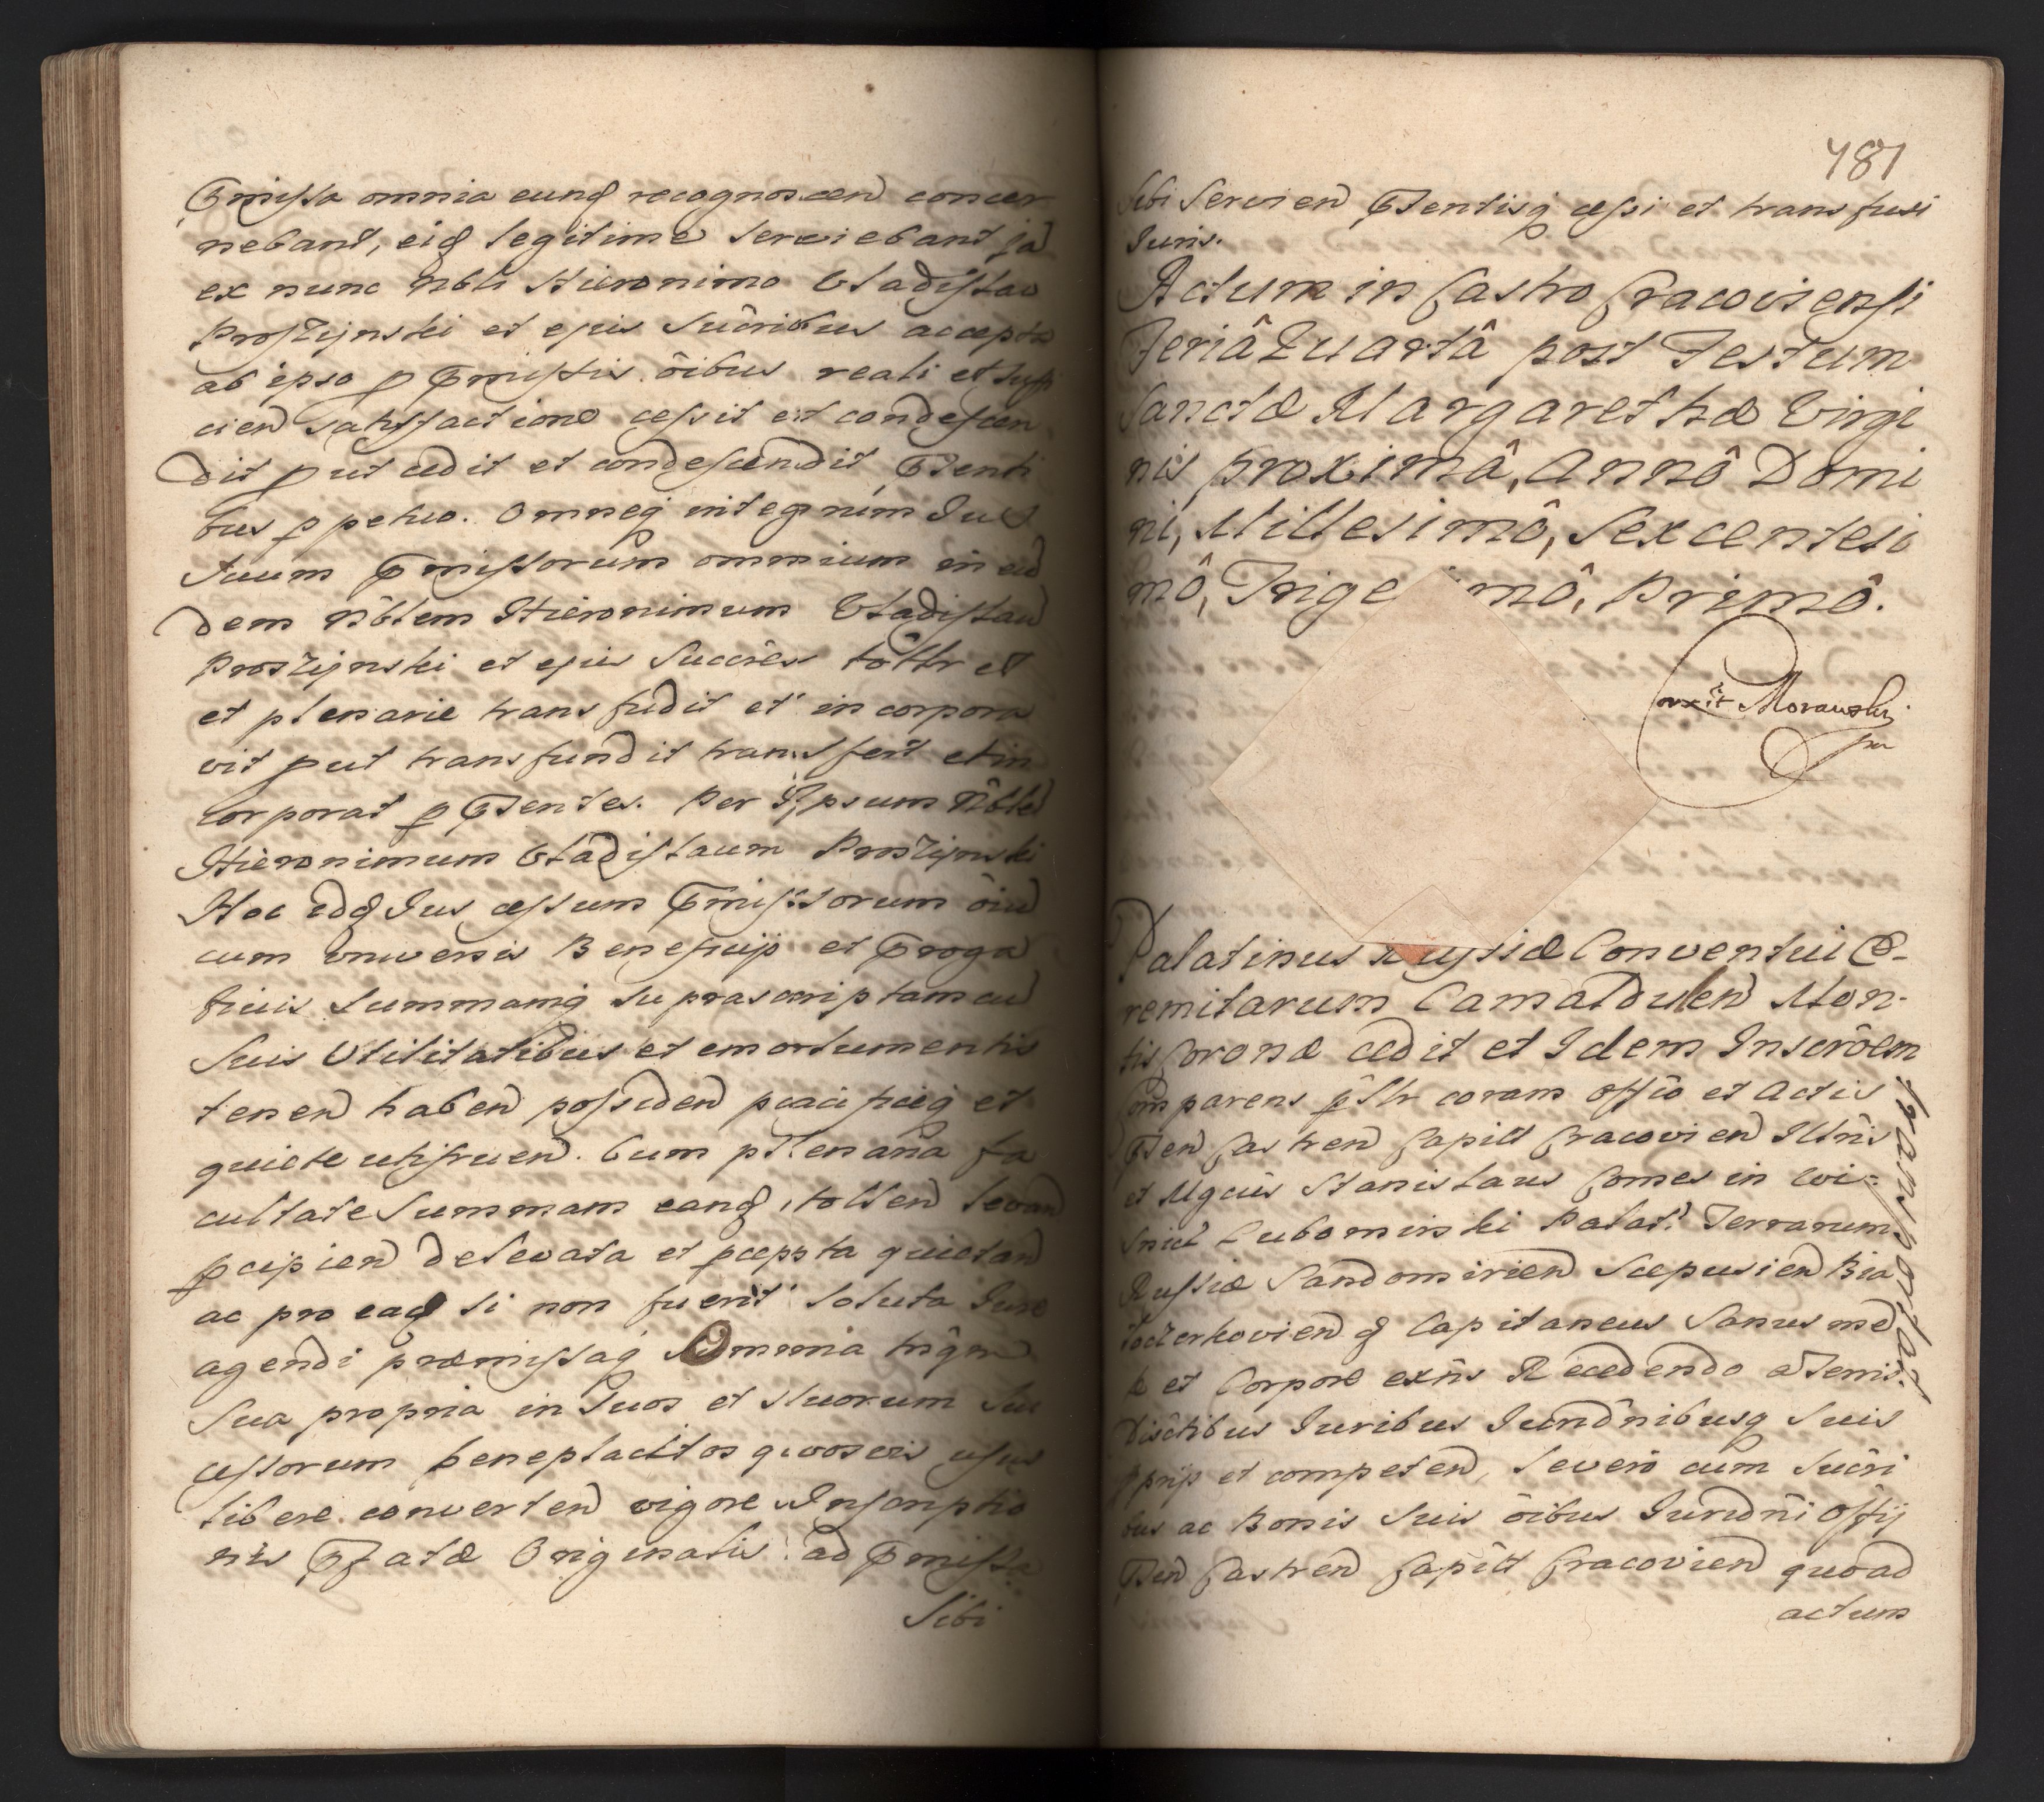 Pmissa omnia eund recognoscen concer
nebant, eid legitime serviebant ja
ex nunc Nbli Hieronimo Vladislao
Proszynski et ejus Sucribus accepta
ab ipso p Pmissis oibus reali et suffi
cien satisfactione cessit et condescen
dit put cedit et condescendit, Psenti
bus ppetuo. Omneq integrum Jus
suum Pmissorum omnium in eun
dem Nblem Hieronimum Vladislau
Proszynski et ejus Succres totltr et
et plenarie transfudit et incorpora
vit put transfundit transfert et in
corporat p Psentes. Per Ipsum Nble
Hieronimum Vladislaum Proszynski
Hoc idq Jus cessum Pmissorum oiu
cum universis Beneficijs et Proga
tivis summamq suprascriptam cu
suis Utilitatibus et emortumentis
tenen haben possiden pacificeq et
quiete utifruen. Cum plenaria fa
cultate summam eand, tollen levan
pcipien delevata et pcepta quietan
ac pro ead si non fuerit soluta Jure
agendi præmissaq Omnia
sua propria in suos et suorum suc
cessorum beneplacitos quosvis usus
libere converten vigore Inscriptio
nis Pfatæ Originalis ad Pmissa
Sibi
481
Sibi Servien Psentisq cessi et transfusi
Juris.
Actum in Castro Cracoviensi
Feriâ Quartâ post Festum
Sanctæ Margarethæ Virgi
nis proximâ, Annô Domi
ni, Millesimô, Sexcentesi
mô, Trige mô, Primô.
Morawski
Palatinus Russiæ Conventui E-
remitarum Camaldulen Mon-
tis Coronæ cedit et Idem Inscrôem
Comparens pslr coram offio et Actis
Psen Castren Capitt Cracovien Illris
et Mgcus Stanislaus Comes in Wi-
snicz Lubomirski Palat: Terrarum
Russiæ Sandomirien Scepusien Bia
locerkovien q Capitaneus Sanus men
te et Corpore exñs Recedendo a Terris
Disctibus Juribus Jurdnibusq suis
pprijs et competen, severo cum sucri
bus ac Bonis suis oibus Jurdni Offij
Psen Castren Capitt Cracovien quoad
actum